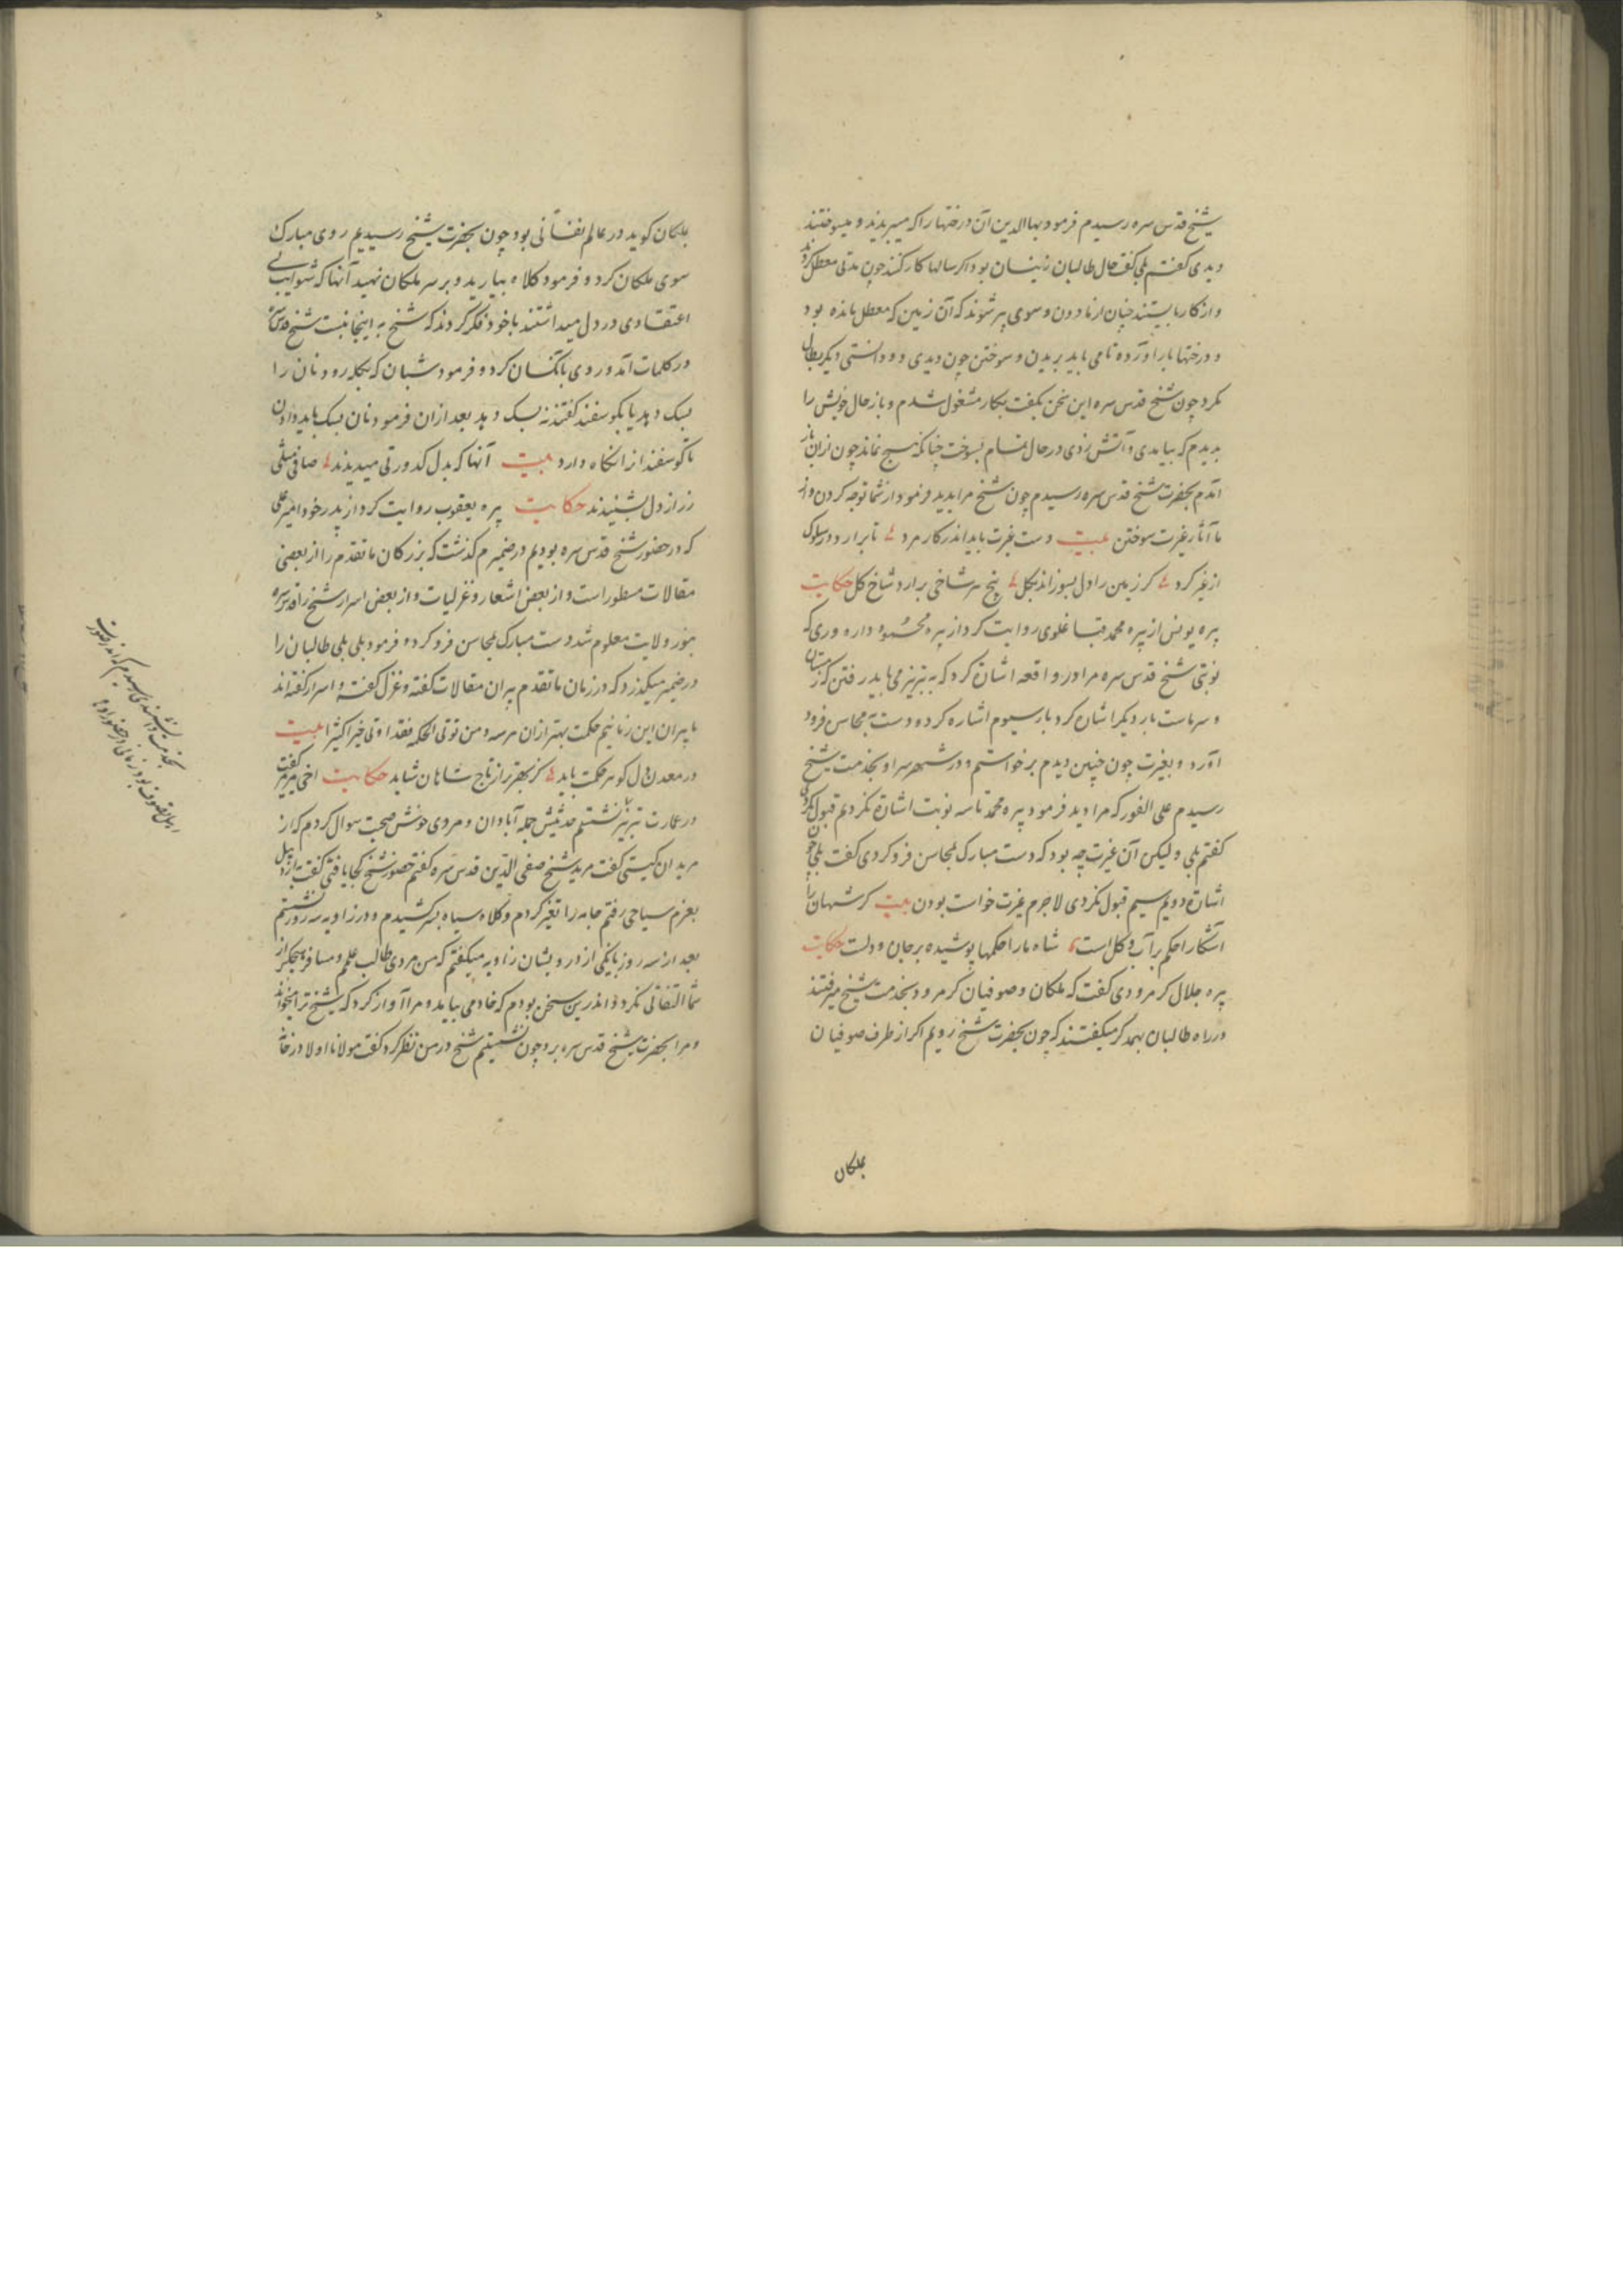 شیخ قدس سره رسیدم فرمود بها الدین آن درختها را که میبریدند و میسوختند
دیدی کفتم بلی کفت حال طالبان زینسان بود اکر سالها کار کنند چون مدتی معطل کردند
و از کار باز ایستند چنان از نا دون و سوی پر شوند که آن زمین که معطل مانده بود
و درختها بار آورده تا می باید بریدن و سوختن چون دیدی و دانستی دیکر بطال
مکرد چون شیخ قدس سره این سخن بکفت بکار مشغول شدم و باز حال خویش را
بدیدم که بیامدی و آتش زدی در حال تمام بسوخت چنانکه هیچ نماند چون از آن باز
آمدم بحضرت شیخ قدس سره رسیدم چون شیخ مرا بدید فرمود از شما توجه کردن و از
ما آثار غیرت سوختن بیت دست غیرت باید اندر کار مرد تا برارد در سلوک
از غیر کرد کر زمین را دل بسوزاند بکل پنج سر شاخی برارد شاخ کل حکایت
پره یونس از پره محمد قبا غلوی روایت کرد از پره محمود داره وری که
نوبتی شیخ قدس سره مرا در واقعه اشاره کرد که به تبریز می باید رفتن که زمستان
و سرماست بار دیکر اشاره کرد بار سیوم اشاره کرده دست به محاسن فرود
آورد و بغیرت چون چنین دیدم برخواستم و در شهر سراو بخدمت شیخ
رسیدم علی الفور که مرا دید فرمود پیره محمد تا سه نوبت اشاره نکردیم قبول نکردی
کفتم بلی و لیکن آن غیرت چه بود که دست مبارک بمحاسن فرو کردی کفت بلی چون
اشاره دویم سیم قبول نکردی لاجرم غیرت خواست بودن بیت کر شهان را
آشکارا حکم بر آب و کل است شاه ما را حکمها پوشیده بر جان و دلت حکایت
پره جلال کرمرودی کفت که ملکان و صوفیان کرمرود بخدمت شیخ میرفتند
در راه طالبان بهمدکر میکفتند که چون بحضرت شیخ رویم اکر از طرف صوفیان
ملکان
ملکان کوید در عالم نفسانی بود چون بحضرت شیخ رسیدیم روی مبارک
سوی ملکان کرد و فرمود کلاه بیارید و بر سر ملکان نهید آنها که شوایب بی
اعتقادی در دل میداشتند با خود فکر کردند که شیخ به اینجا نیست شیخ قدس سره
در کلمات آمد و روی بآنکسان کرد و فرمود شبان که بکله رود نان را
بسک دهد یا بکوسفند کفتند نه بسک دهد بعد ازان فرمود نان بسک باید دادن
تا کوسفند را نکاه دارد بیت آنها که بدل کدورتی میدیدند صافی مثلی
ز راز دل بشنیدند حکایت پره یعقوب روایت کرد از پدر خود امیر علی
که در حضور شیخ قدس سره بودیم در ضمیرم کذشت که بزرکان ما تقدم را از بعضی
مقالات مسطور است و از بعض اشعار و غزلیات و از بعض اسرار شیخ را قدس سره
بنور ولایت معلوم شد دست مبارک بمحاسن فرو کرده فرمود بلی بلی طالبان را
در ضمیر میکذرد که در زمان ما تقدم پیران مقالات کفته و غزل کفته و اسرار کفته اند
ما پیران این زمانیم حکمت بهتر ازان هر سه و من یوتی الحکمه فقد اوتی خیرا کثیرا بیت
در معدن دل کوهر حکمت باید کز بهتر از تاج شاهان شاید حکایت اخی میرمیر کفت
در عمارت تبریز نشستم حدیثش جمله آبادان و مردی خوش صحبت سوال کردم که از
مریدان کیستی کفت مرید شیخ صفی الدین قدس سره کفتم حضور شیخ کجا یافتی کفت باردبیل
بعزم سیاحی رفتم جامه را تغیر کردم و کلاه سیاه بر سر کشیدم و در زاویه سه روز نشستم
بعد از سه روز با یکی از درویشان زاویه میکفتم که من مردی طالب علم و مسافر هیچکس از
شما التفاتی نکرد و اندرین سخن بودم که خادمی بیامد و مرا آواز کرد که شیخ ترا میخواند
و مرا بحضرت شیخ قدس سره برد چون بنشستم شیخ در من نظر کرد کفت مولانا اولا در خانه